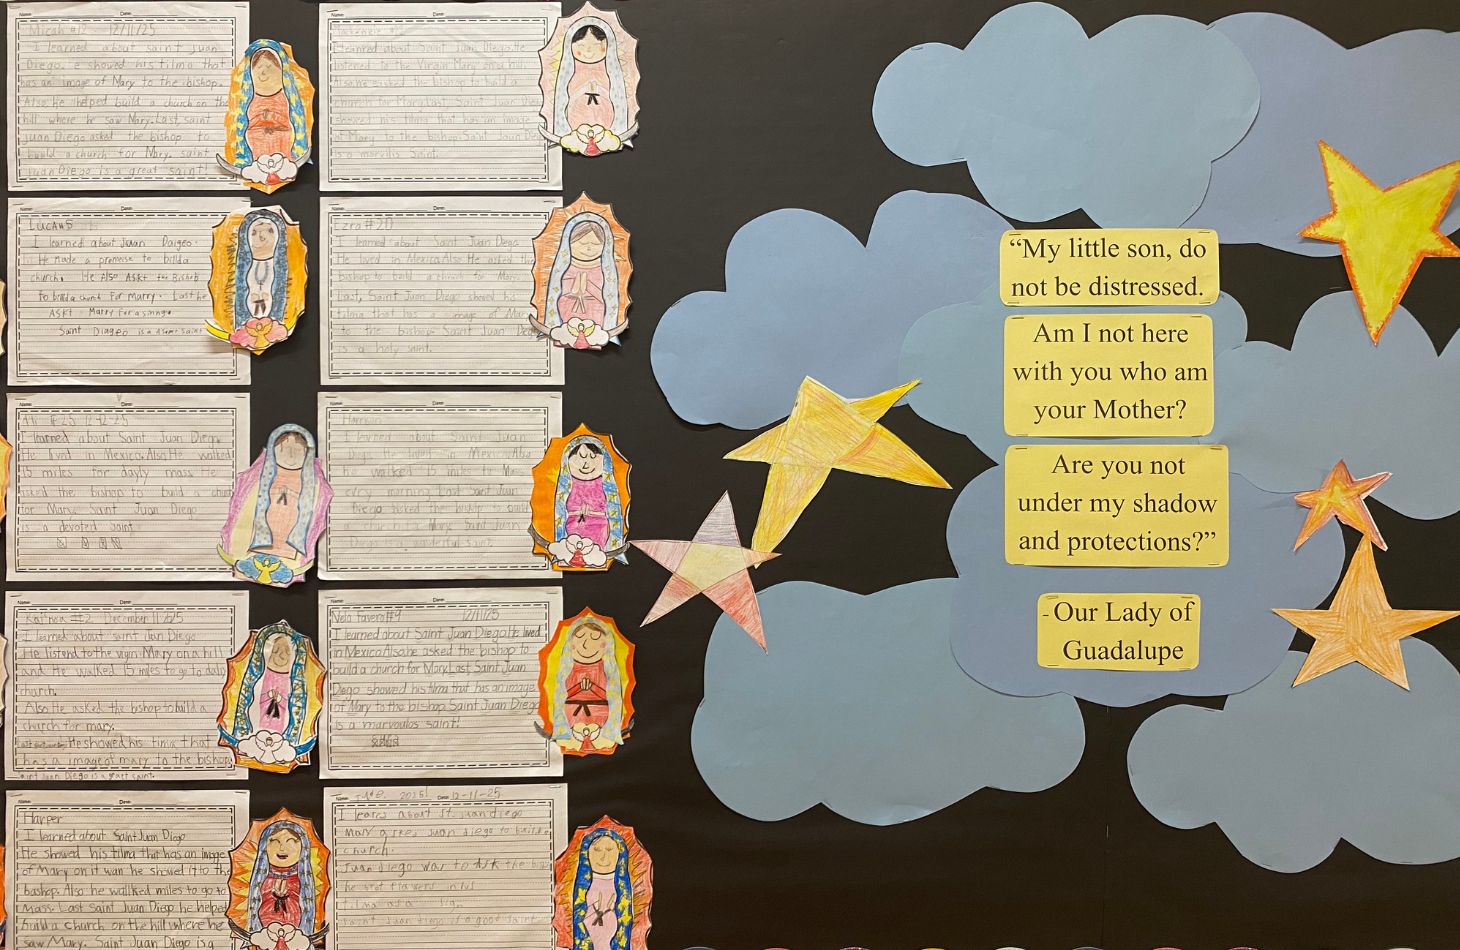 Name: Date:
Micah #12 12/11/25
I learned about saint juan
Diego. e showed his tilma that
has an image of Mary to the bishop.
Also, He helped build a church on the
hill where he saw Mary. Last, saint
juan Diego asked the bishop to
build a church for Mary. saint
juan Diego is a great saint!
Name: Date:
Mackenzie
I learned about Saint Juan Diego. He
listened to the Virgin Mary on a hill.
Also, he asked the bishop to build a
church for Mary. Last, Saint Juan
showed his tilma that has an image
of Mary to the bishop. Saint Juan
is a Saint.
Name: Date:
Lucas 5
I learned about Juan Daigeo.
He made a premense to build a
church. He Also Askt the Bishop
to build a church For Marry. Last he
ASkt Marry For a sining.
Saint Diageo is a Saint
Name: Date:
Ezra #20
I learned about Saint Juan Dego.
He lived in Mexico. Also, He asked the
bishop to build a church for Mary.
Last, Saint Juan Diego showed his
tilma that has a image of Mary
to the bishop. Saint Juan Dego
is a holy saint.
Name: Date:
12-12-25
I learned about Saint Juan Diego.
He lived in Mexico. Also, He walked
15 miles for dayly mass. He
asked the bishop to build a church
for Mary. Saint Juan Diego
is a devoted saint.
Name: Date:
Harrison
I learned about Saint Juan
Diego. He lived in Mexico. Also,
he walked 15 miles to Mass
evry morning. Last Saint Juan
Diego asked the bishop to build
a church for Mary. Saint Juan
Diego is a wonderful saint.
Name: Date:
#2 December 11/25
I learned about saint Juan Diego
He listend to the virgin Mary on a hill
and He walked 15 miles to go to daily
church.
Also He asked the bishop to build a
church for mary.
He showed his tilma that
has a image of mary to the bishop.
Saint Juan Diego is a great saint.
Name: Date:
Nela Favero #9 12/11/25
I learned about Saint Juan Diego. He lived
in Mexico. Also, he asked the bishop to
build a church for Mary. Last, Saint Juan
Diego showed his tilma that has an image
of Mary to the bishop. Saint Juan Diego
is a marvoulos saint!
Name: Date:
Harper
I learned about Saint Juan Diego
He showed his tilma that has an image
of Mary on it wan he showed it to the
bashop. Also he wallked miles to go to
Mass. Last Saint Juan Diego he helped
build a church on the hill where he
saw Mary. Saint Juan Diego is a
Name: 2025! Date: 12-11-25
I learns about St. juan diego
juan diego to build
church.
Juan diego was to ask the
he got flowers in his
tilma as a
Saint Juan diego is a good saint
“My little son, do
not be distressed.
Am I not here
with you who am
your Mother?
Are you not
under my shadow
and protections?”
-Our Lady of
Guadalupe